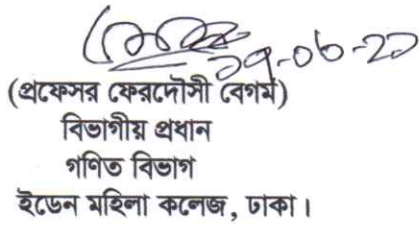 ২৭-০৬-২১
(প্রফেসর ফেরদৌসী বেগম)
বিভাগীয় প্রধান
গণিত বিভাগ
ইডেন মহিলা কলেজ, ঢাকা।